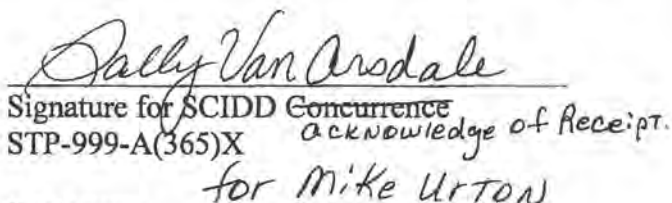 Sally Van Arsdale
Signature for SCIDD Concurrence
acknowledge of Receipt.
STP-999-A(365)X
for Mike Urton